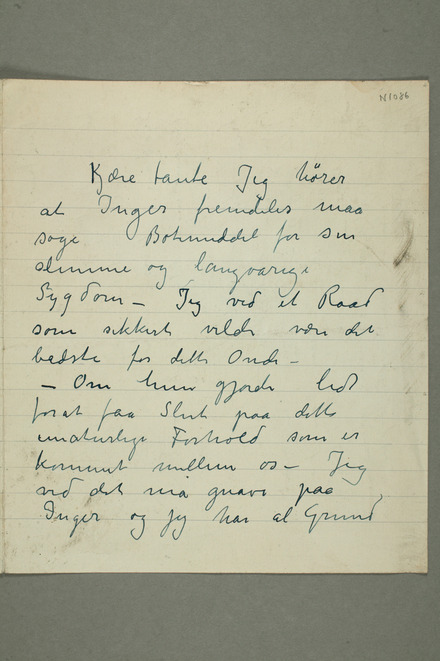 N1036
Kjære tante Jeg hører
at Inger fremdeles maa
søge Botemiddel for sin
slemme og langvarige
Sygdom – Jeg ved et Raad
som sikkert vilde være det
bedste for dette Onde –
– Om hun gjorde lidt
forat faa Slut paa dette
unaturlige Forhold som er
kommet mellem os – Jeg
ved det må gnave paa
Inger og jeg har al Grund